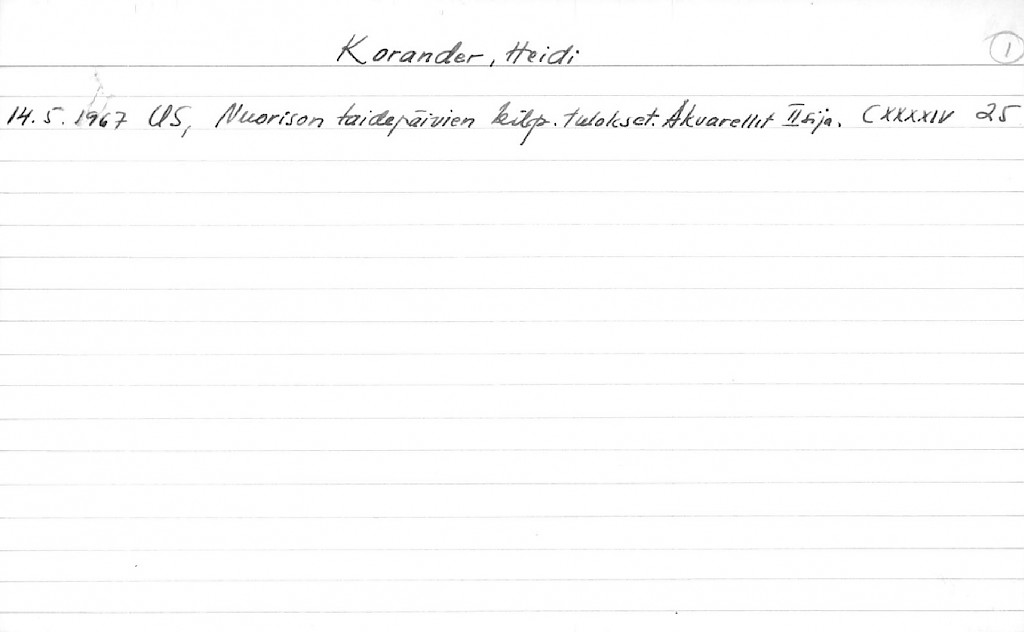 Korander, Heidi 1
14.5.1967 US, Nuorison taidepäivien kilp. tulokset. Akvarellit II sija. CXXXXIV 25